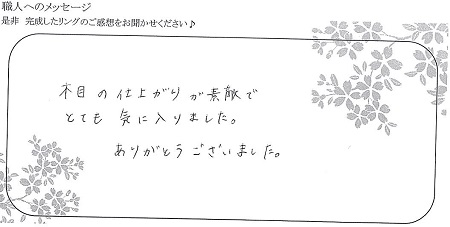 職人へのメッセージ
是非 完成したリングのご感想をお聞かせください♪
木目の仕上がりが素敵で
とても気に入りました。
ありがとうございました。